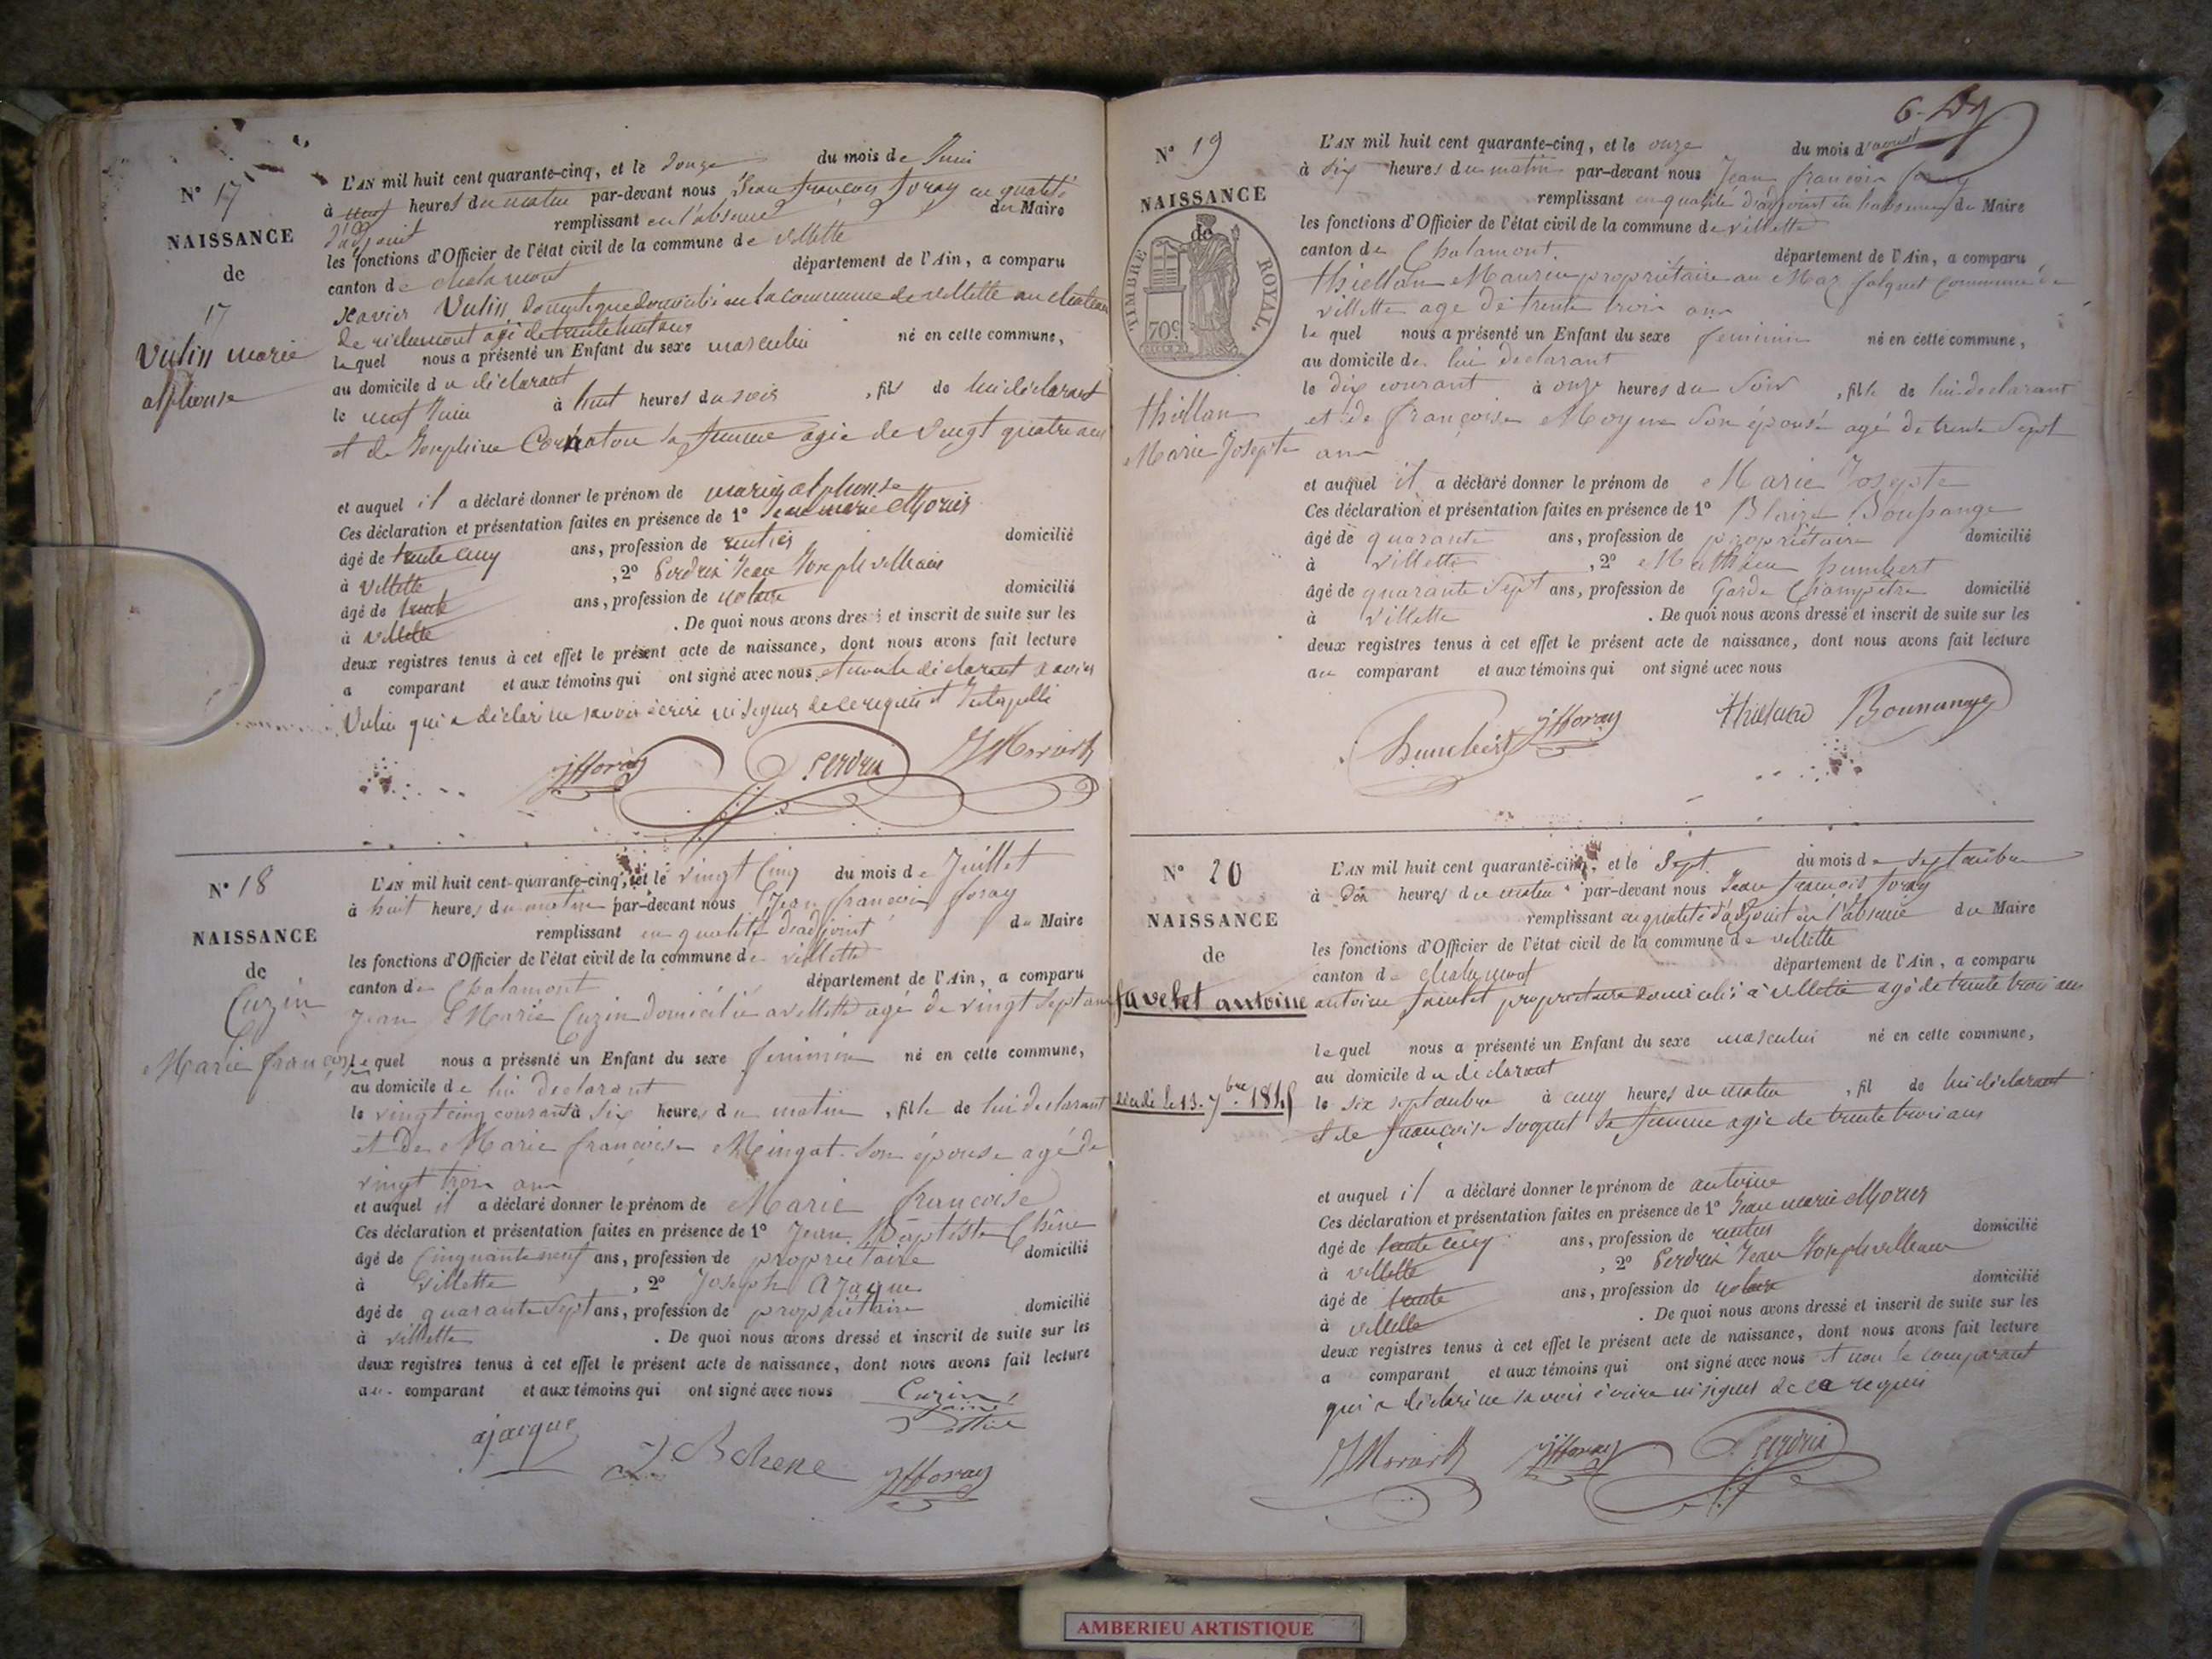 N° 17
NAISSANCE
de
17
Vulin marie
alphonse
L'AN mil huit cent quarante-cinq, et le douze du mois de Juin
à neuf heures du matin par-devant nous Jean françois foray en qualité
d'adjoint remplissant en l'absence du Maire
les fonctions d'Officier de l'état civil de la commune de villette
canton de chalamont département de l'Ain, a comparu
xavier Vulin domestique domicilié en la commune de villette au chateau
de richemont agé de trente huit ans
lequel nous a présenté un Enfant du sexe masculin né en cette commune,
au domicile du déclarant
le neuf Juin à huit heures du soir, fils de lui déclarant
et de Josephine Cornaton sa femme agée de vingt quatre ans
et auquel il a déclaré donner le prénom de marie alphonse
Ces déclaration et présentation faites en présence de 1° Jean marie Morier
âgé de trente cinq ans, profession de rentier domicilié
à villette, 2° Perdrix Jean Joseph
âgé de trente ans, profession de notaire domicilié
à villette. De quoi nous avons dressé et inscrit de suite sur les
deux registres tenus à cet effet le présent acte de naissance, dont nous avons fait lecture
a comparant et aux témoins qui ont signé avec nous et non le déclarant xavier
Vulin qui a déclaré ne savoir écrire ni signer de ce requis et
jfforay Perdrix
N° 18
NAISSANCE
de
Cuzin
Marie françoise
L'AN mil huit cent quarante-cinq, et le vingt Cinq du mois de Juillet
à huit heures du matin par-devant nous Jean françois foray
remplissant en qualité d'adjoint du Maire
les fonctions d'Officier de l'état civil de la commune de villette
canton de Chalamont département de l'Ain, a comparu
Jean Marie Cuzin domicilié a villette agé de vingt sept ans
lequel nous a présenté un Enfant du sexe feminin né en cette commune,
au domicile de lui declarant
le vingt cinq courant à six heures du matin, fille de lui declarant
et de Marie françoise Mingat son épouse agé de
vingt trois ans
et auquel il a déclaré donner le prénom de Marie françoise
Ces déclaration et présentation faites en présence de 1° Jean Baptiste Chêne
âgé de Cinquante neuf ans, profession de propriétaire domicilié
à villette, 2° Joseph Ajacque
âgé de quarante sept ans, profession de propriétaire domicilié
à villette. De quoi nous avons dressé et inscrit de suite sur les
deux registres tenus à cet effet le présent acte de naissance, dont nous avons fait lecture
au comparant et aux témoins qui ont signé avec nous Cuzin
ajacque J B chene jfforay
6.
N° 19
NAISSANCE
de
TIMBRE ROYAL.
70 c.
thiollan
Marie Josepte
L'AN mil huit cent quarante-cinq, et le onze du mois d'aout
à six heures du matin par-devant nous Jean françois foray
remplissant en qualité d'adjoint en l'absence du Maire
les fonctions d'Officier de l'état civil de la commune de villette
canton de Chalamont département de l'Ain, a comparu
thiollan Maurin propriétaire au Maz folquet Commune de
villette age de trente trois ans
lequel nous a présenté un Enfant du sexe feminin né en cette commune,
au domicile de lui declarant
le dix courant à onze heures du soir, fille de lui declarant
et de françoise Moyne son épouse agé de trente sept
ans
et auquel il a déclaré donner le prénom de Marie Josepte
Ces déclaration et présentation faites en présence de 1° Blaize
âgé de quarante ans, profession de propriétaire domicilié
à villette, 2° Mathieu humbert
âgé de quarante sept ans, profession de Garde Champêtre domicilié
à villette. De quoi nous avons dressé et inscrit de suite sur les
deux registres tenus à cet effet le présent acte de naissance, dont nous avons fait lecture
au comparant et aux témoins qui ont signé avec nous
humbert jfforay
N° 20
NAISSANCE
de
favelet antoine
décédé le 13. 7bre 1845
L'AN mil huit cent quarante-cinq, et le Sept du mois de Septembre
à dix heures du matin par-devant nous Jean françois foray
remplissant en qualité d'adjoint en l'absence du Maire
les fonctions d'Officier de l'état civil de la commune de villette
canton de chalamont département de l'Ain, a comparu
antoine favelet propriétaire domicilié à villette agé de trente trois ans
lequel nous a présenté un Enfant du sexe masculin né en cette commune,
au domicile du déclarant
le six septembre à cinq heures du matin, fil de lui déclarant
et de françoise soquet sa femme agée de trente trois ans
et auquel il a déclaré donner le prénom de antoine
Ces déclaration et présentation faites en présence de 1° Jean marie Morier
âgé de trente cinq ans, profession de rentier domicilié
à villette, 2° Perdrix Jean Joseph
âgé de trente ans, profession de notaire domicilié
à villette. De quoi nous avons dressé et inscrit de suite sur les
deux registres tenus à cet effet le présent acte de naissance, dont nous avons fait lecture
a comparant et aux témoins qui ont signé avec nous et non le comparant
qui a déclaré ne savoir écrire ni signer de ce requis
jfforay Perdrix
AMBERIEU ARTISTIQUE